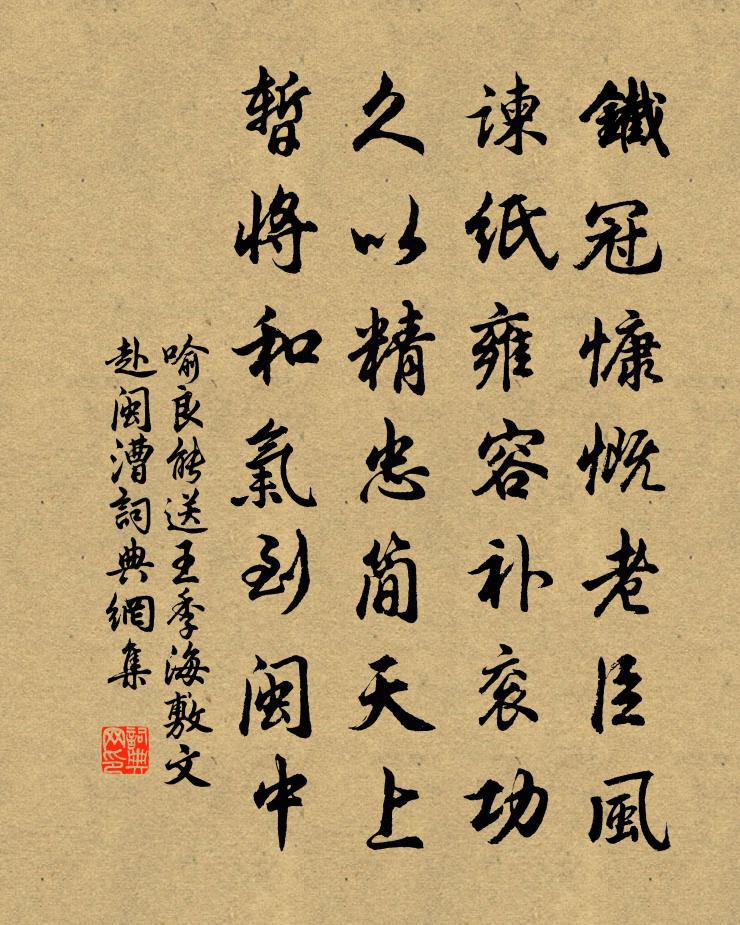 鐵冠慷慨老臣風
諫紙雍容补衮功
久以精忠简天上
暫将和氣到闽中
喻良能送王季海敷文
赴闽漕詞典網集
詞典网印